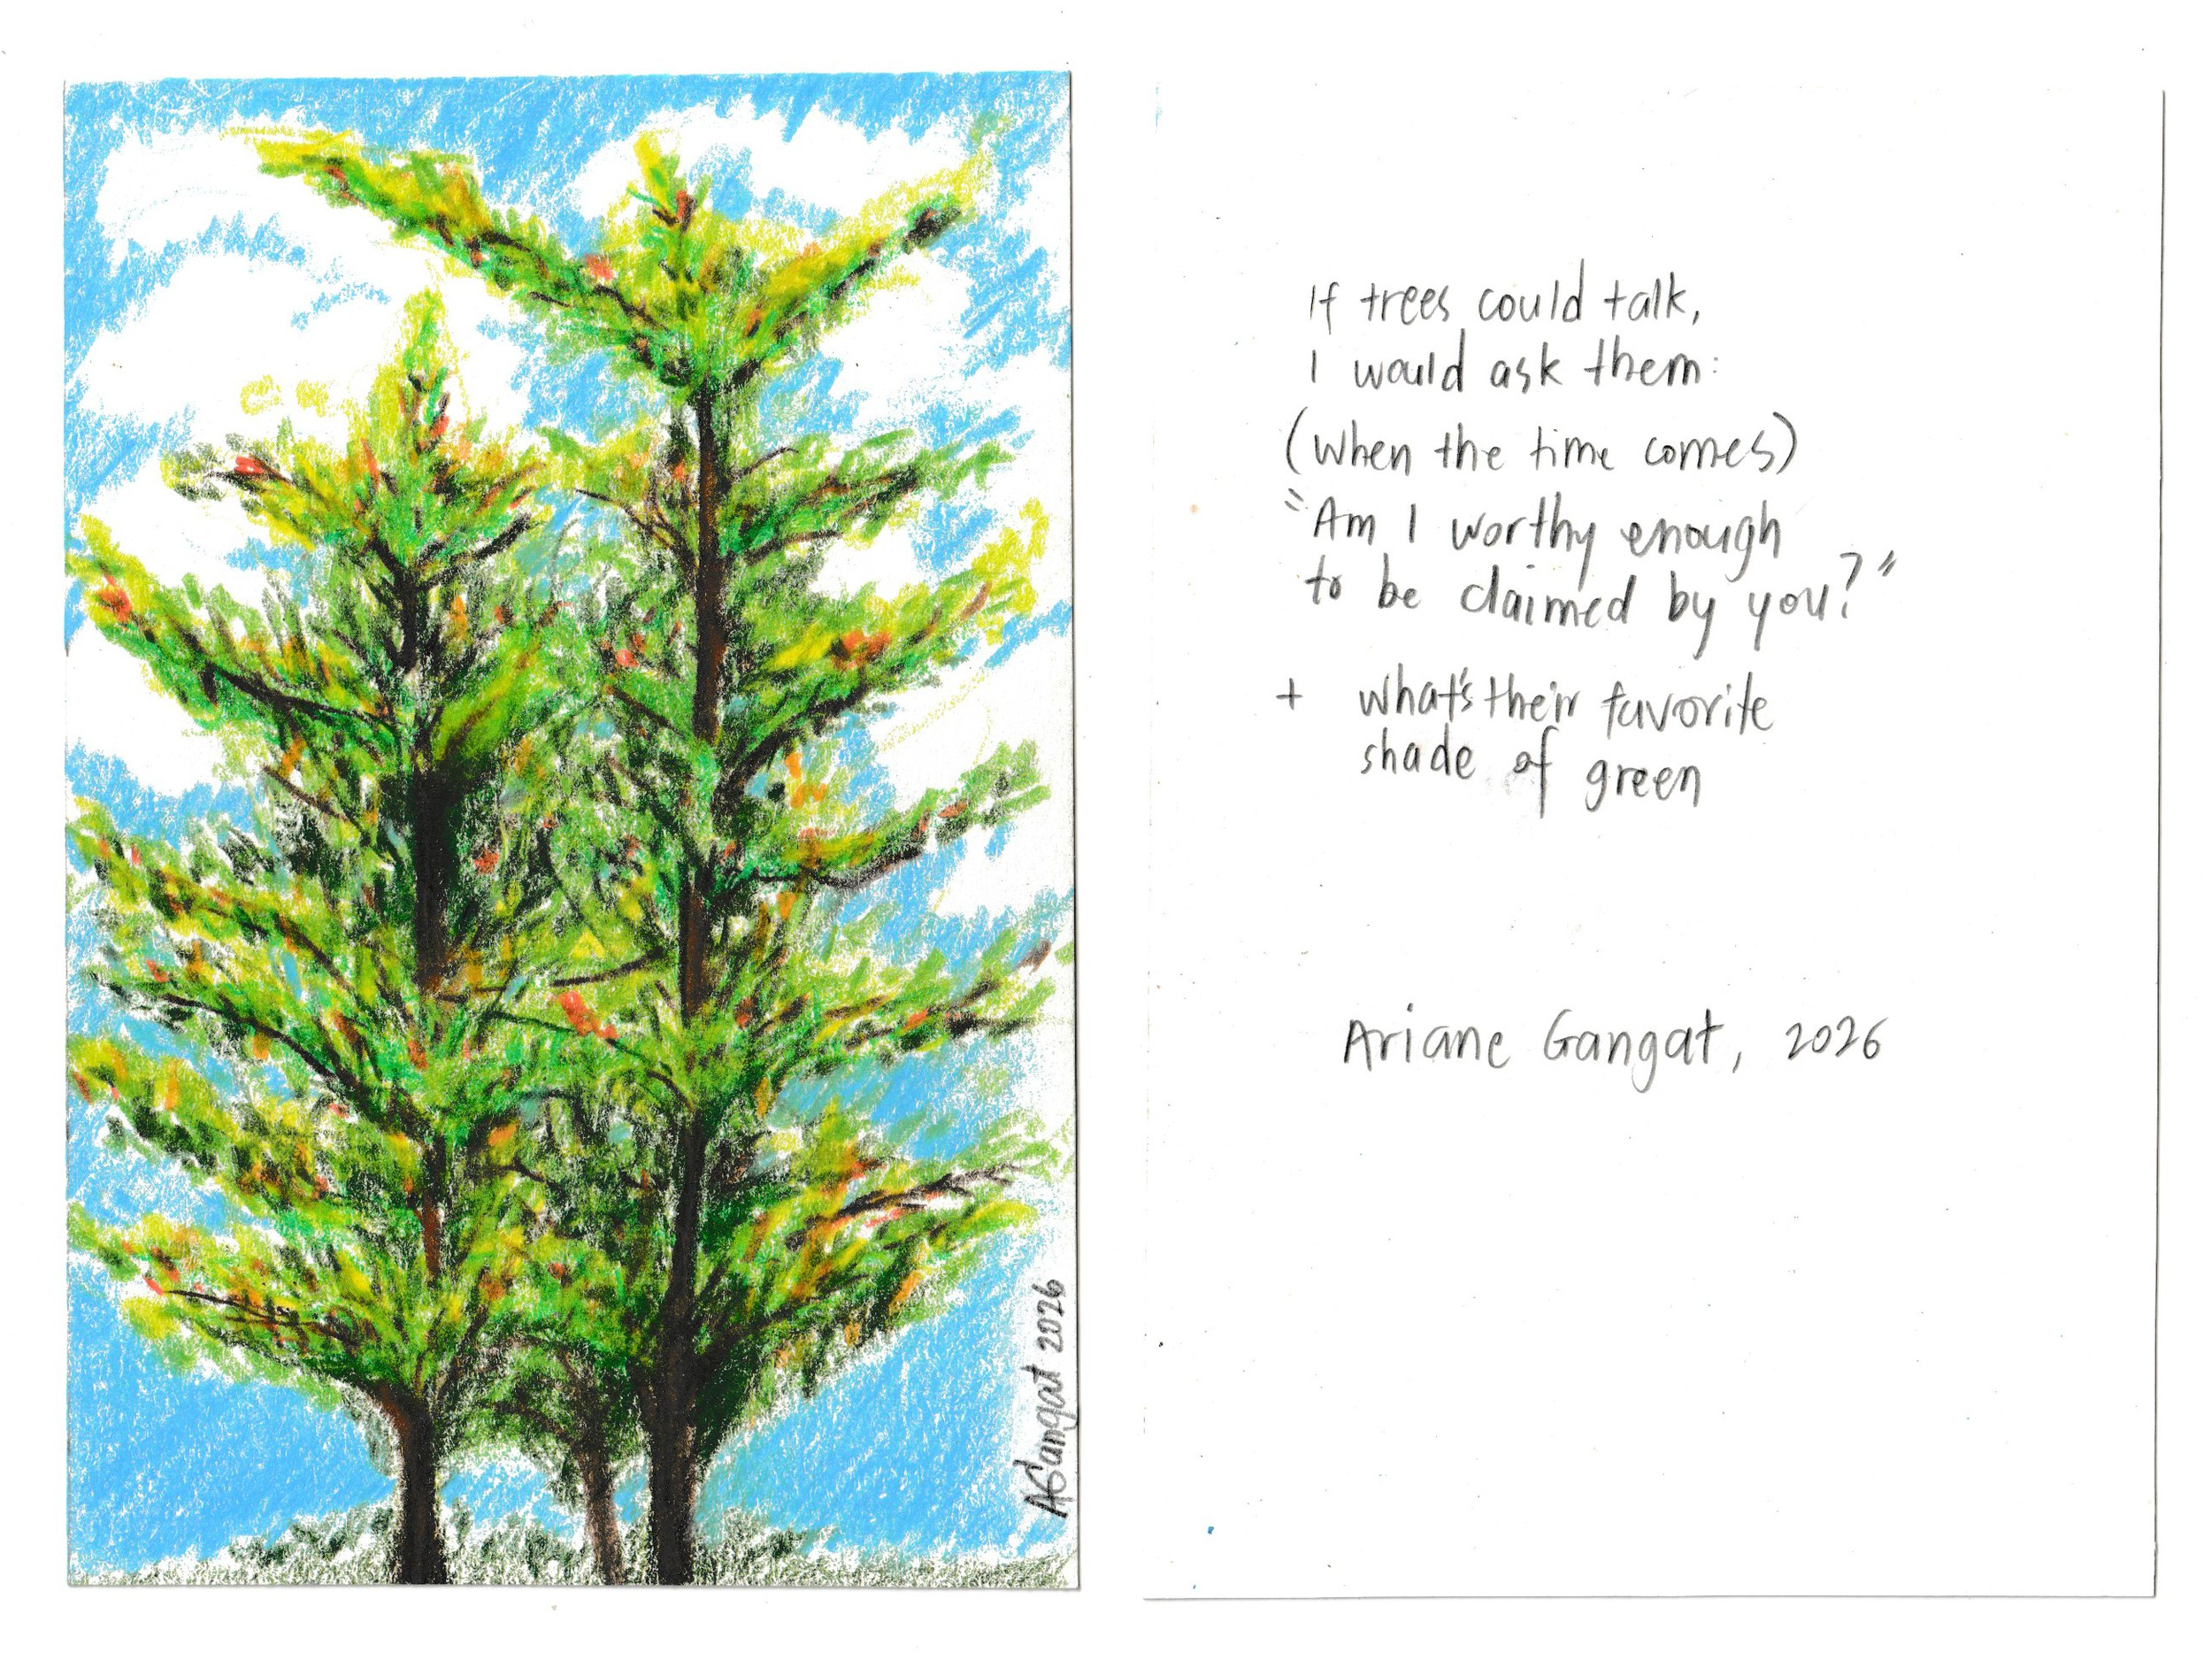 AGangat 2026
If trees could talk,
I would ask them:
(when the time comes)
"Am I worthy enough
to be claimed by you?"
+ what's their favorite
shade of green
Ariane Gangat, 2026